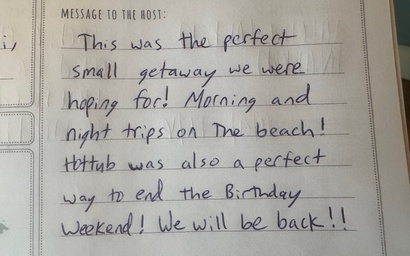 MESSAGE TO THE HOST:
i,
This was the perfect
small getaway we were
hoping for! Morning and
night trips on The beach!
Hottub was also a perfect
way to end the Birthday
Weekend! We will be back!!